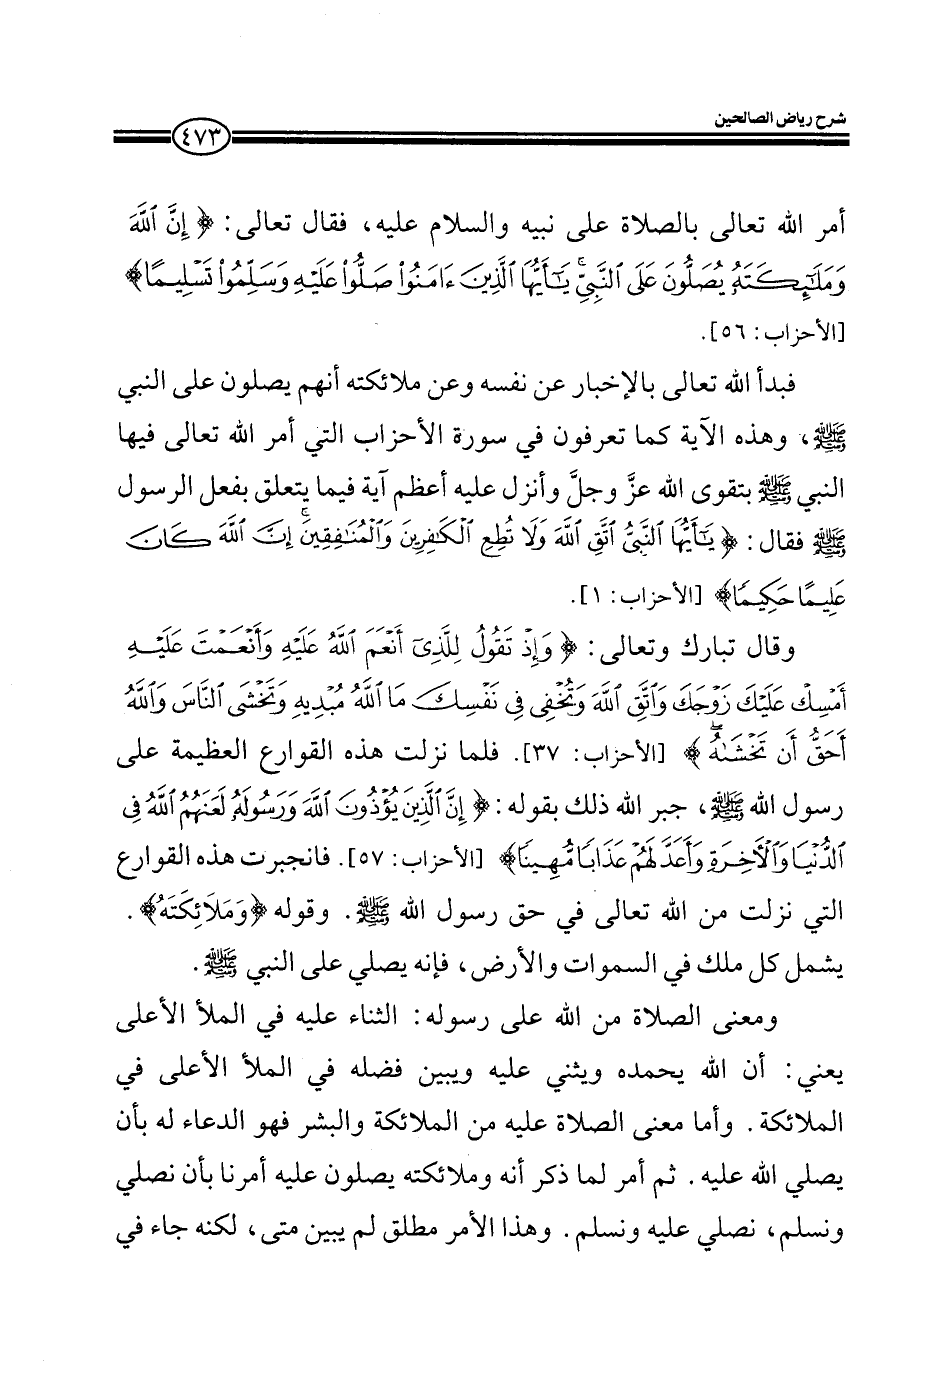 شرح رياض الصالحين
٤٧٣
أمر الله تعالى بالصلاة على نبيه والسلام عليه، فقال تعالى: ﴿ إِنَّ ٱللَّهَ
وَمَلَـٰٓئِكَتَهُۥ يُصَلُّونَ عَلَى ٱلنَّبِيِّۚ يَـٰٓأَيُّهَا ٱلَّذِينَ ءَامَنُوا۟ صَلُّوا۟ عَلَيْهِ وَسَلِّمُوا۟ تَسْلِيمًا﴾
[الأحزاب: ٥٦].
فبدأ الله تعالى بالإخبار عن نفسه وعن ملائكته أنهم يصلون على النبي
ﷺ، وهذه الآية كما تعرفون في سورة الأحزاب التي أمر الله تعالى فيها
النبي ﷺ بتقوى الله عزَّ وجلَّ وأنزل عليه أعظم آية فيما يتعلق بفعل الرسول
ﷺ فقال: ﴿ يَـٰٓأَيُّهَا ٱلنَّبِىُّ ٱتَّقِ ٱللَّهَ وَلَا تُطِعِ ٱلْكَـٰفِرِينَ وَٱلْمُنَـٰفِقِينَۚ إِنَّ ٱللَّهَ كَانَ
عَلِيمًا حَكِيمًا﴾ [الأحزاب: ١].
وقال تبارك وتعالى: ﴿ وَإِذْ تَقُولُ لِلَّذِىٓ أَنْعَمَ ٱللَّهُ عَلَيْهِ وَأَنْعَمْتَ عَلَيْهِ
أَمْسِكْ عَلَيْكَ زَوْجَكَ وَٱتَّقِ ٱللَّهَ وَتُخْفِى فِى نَفْسِكَ مَا ٱللَّهُ مُبْدِيهِ وَتَخْشَى ٱلنَّاسَ وَٱللَّهُ
أَحَقُّ أَن تَخْشَىٰهُۖ ﴾ [الأحزاب: ٣٧]. فلما نزلت هذه القوارع العظيمة على
رسول الله ﷺ، جبر الله ذلك بقوله: ﴿ إِنَّ ٱلَّذِينَ يُؤْذُونَ ٱللَّهَ وَرَسُولَهُۥ لَعَنَهُمُ ٱللَّهُ فِى
ٱلدُّنْيَا وَٱلْـَٔاخِرَةِ وَأَعَدَّ لَهُمْ عَذَابًا مُّهِينًا﴾ [الأحزاب: ٥٧]. فانجبرت هذه القوارع
التي نزلت من الله تعالى في حق رسول الله ﷺ. وقوله ﴿وَمَلَائِكَتَهُ﴾.
يشمل كل ملك في السموات والأرض، فإنه يصلي على النبي ﷺ.
ومعنى الصلاة من الله على رسوله: الثناء عليه في الملأ الأعلى
يعني: أن الله يحمده ويثني عليه ويبين فضله في الملأ الأعلى في
الملائكة. وأما معنى الصلاة عليه من الملائكة والبشر فهو الدعاء له بأن
يصلي الله عليه. ثم أمر لما ذكر أنه وملائكته يصلون عليه أمرنا بأن نصلي
ونسلم، نصلي عليه ونسلم. وهذا الأمر مطلق لم يبين متى، لكنه جاء في